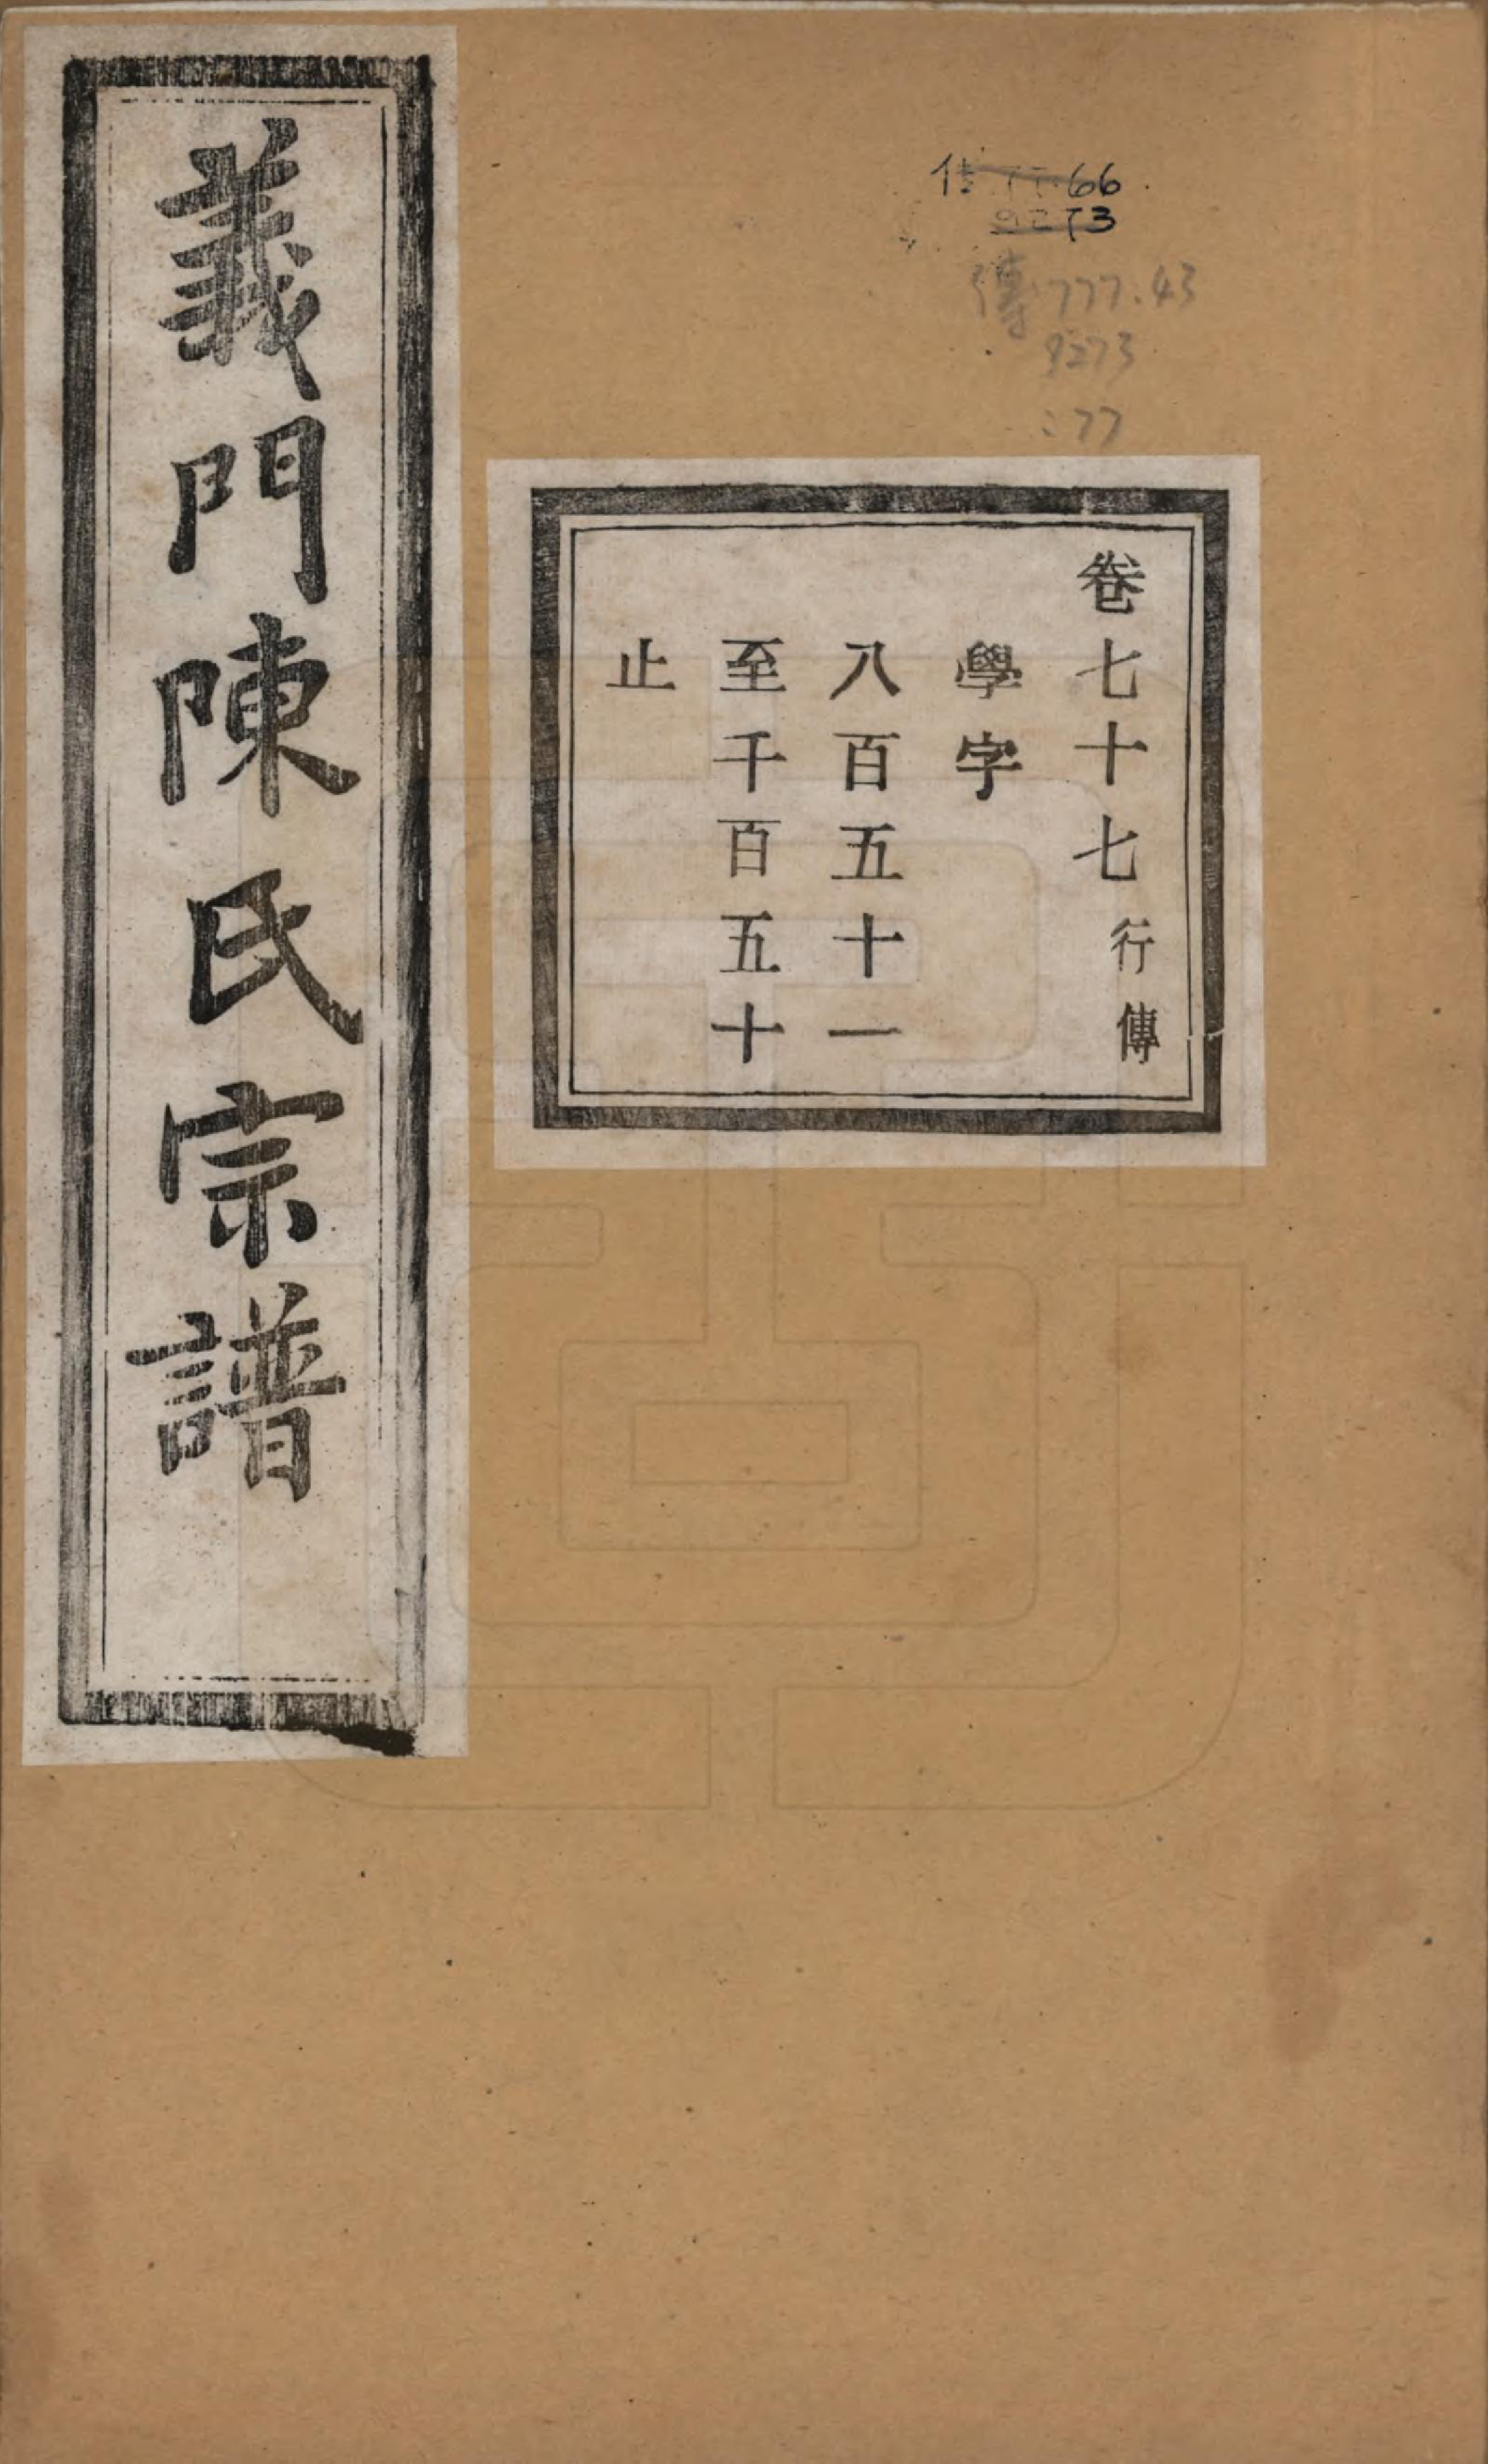 義門陳氏宗譜
卷七十七行傳
學字
八百五十一
至千百五十
止
傳777.43
9273
:77